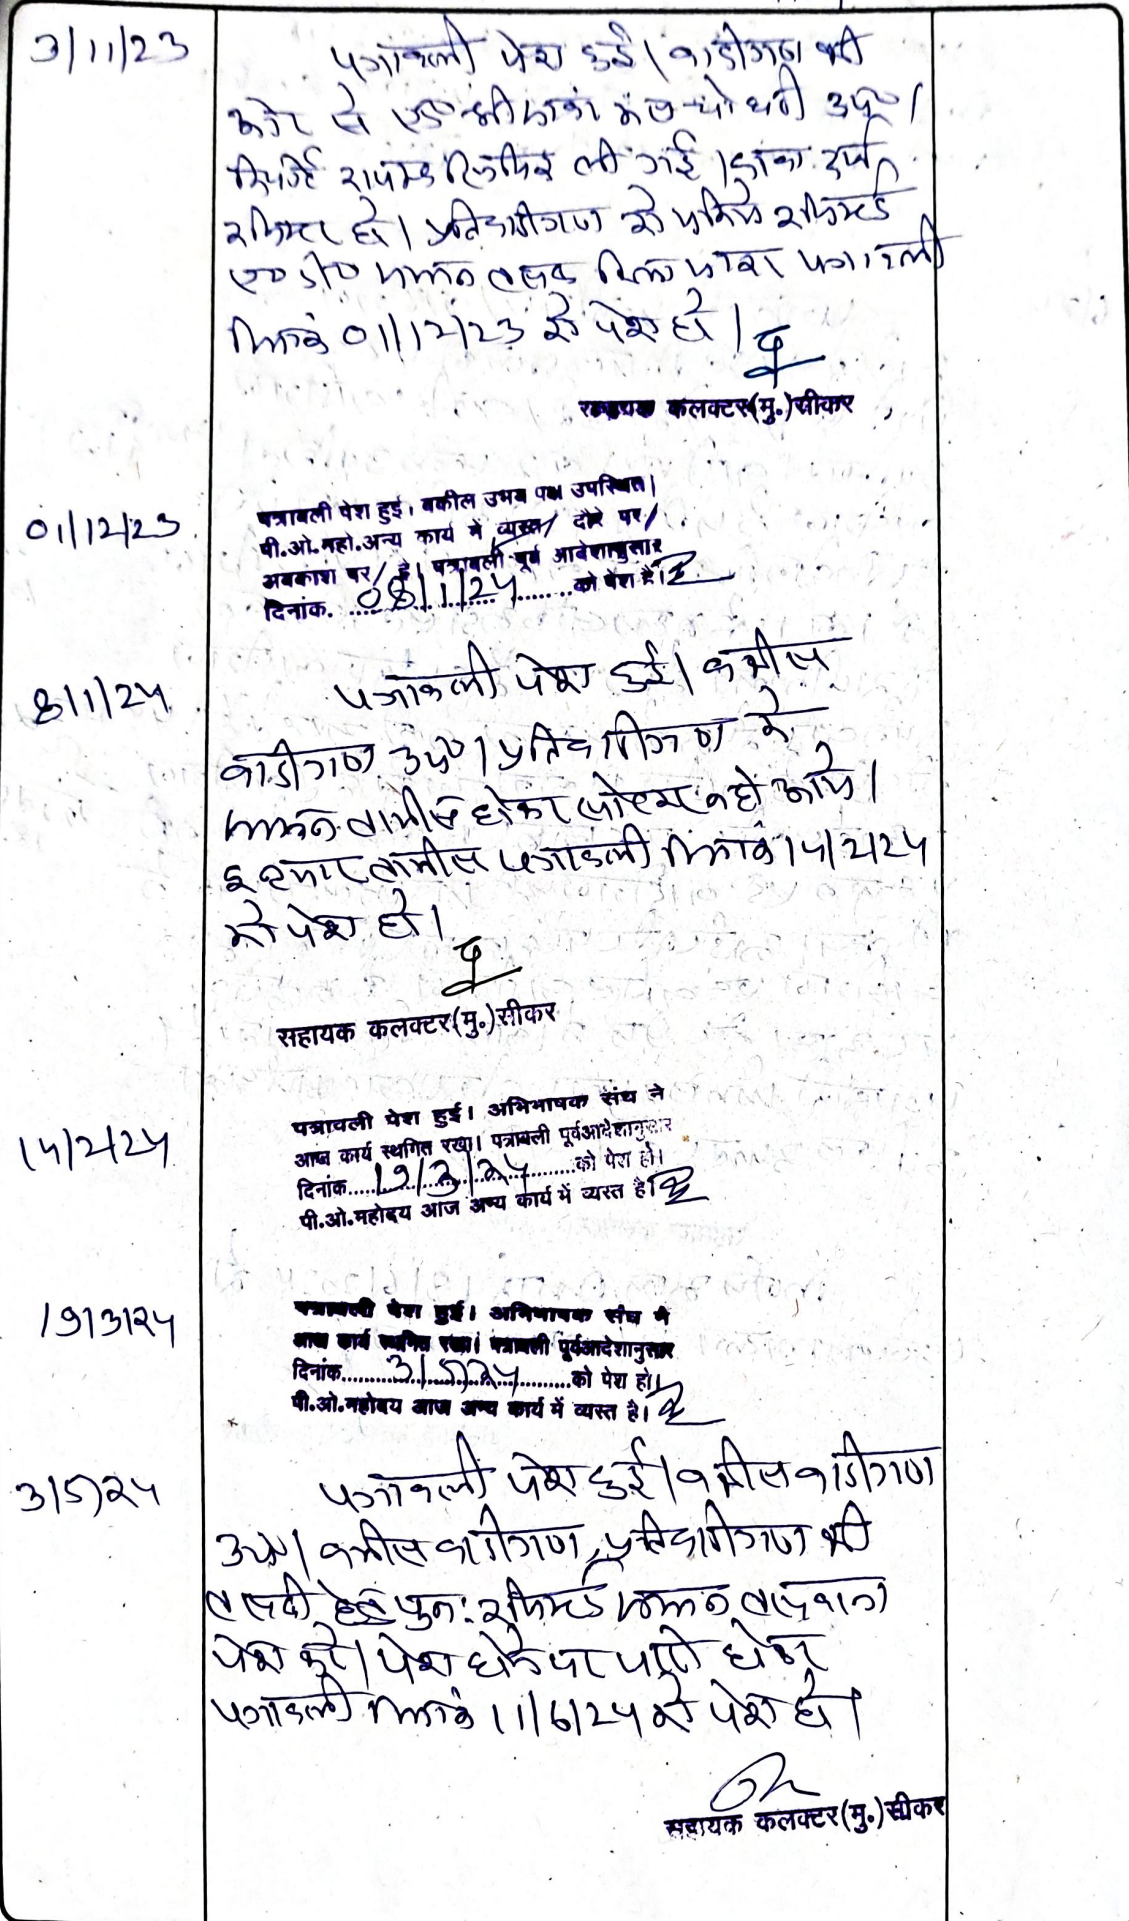 3/11/23
पत्रावली पेश हुई। वादीगण की
ओर से एड० श्री चौधरी उप०।
रिपोर्ट ली गई। दावा दर्ज
रजिस्टर हो। प्रतिवादीगण को जरिये रजिस्टर्ड
ए०डी० सम्मन तलब किया जाकर पत्रावली
दिनांक 01/12/23 को पेश हो।
सहायक कलक्टर(मु.)सीकर
01/12/23
पत्रावली पेश हुई। वकील उभय पक्ष उपस्थित।
पी.ओ.महो.अन्य कार्य में व्यस्त/ दौरे पर/
अवकाश पर/ है। पत्रावली पूर्व आदेशानुसार
दिनांक. 08/1/24 को पेश है।
8/1/24
पत्रावली पेश हुई। वकील
वादीगण उप०। प्रतिवादीगण के
सम्मन तामील होकर नहीं आये।
इन्तजार तामील पत्रावली दिनांक 14/2/24
को पेश हो।
सहायक कलक्टर(मु.)सीकर
14/2/24
पत्रावली पेश हुई। अभिभाषक संघ ने
आज कार्य स्थगित रखा। पत्रावली पूर्वआदेशानुसार
दिनांक.....19/3/24.....को पेश हो।
पी.ओ.महोदय आज अन्य कार्य में व्यस्त है।
19/3/24
पत्रावली पेश हुई। अभिभाषक संघ ने
आज कार्य स्थगित रखा। पत्रावली पूर्वआदेशानुसार
दिनांक.....3/5/24.....को पेश हो।
पी.ओ.महोदय आज अन्य कार्य में व्यस्त है।
3/5/24
पत्रावली पेश हुई। वकील वादीगण
उप०। वकील वादीगण, प्रतिवादीगण की
तलबी हेतु पुनः रजिस्टर्ड सम्मन तलवाना
पेश करे। पेश होने पर जारी होकर
पत्रावली दिनांक 11/6/24 को पेश हो।
सहायक कलक्टर(मु.)सीकर